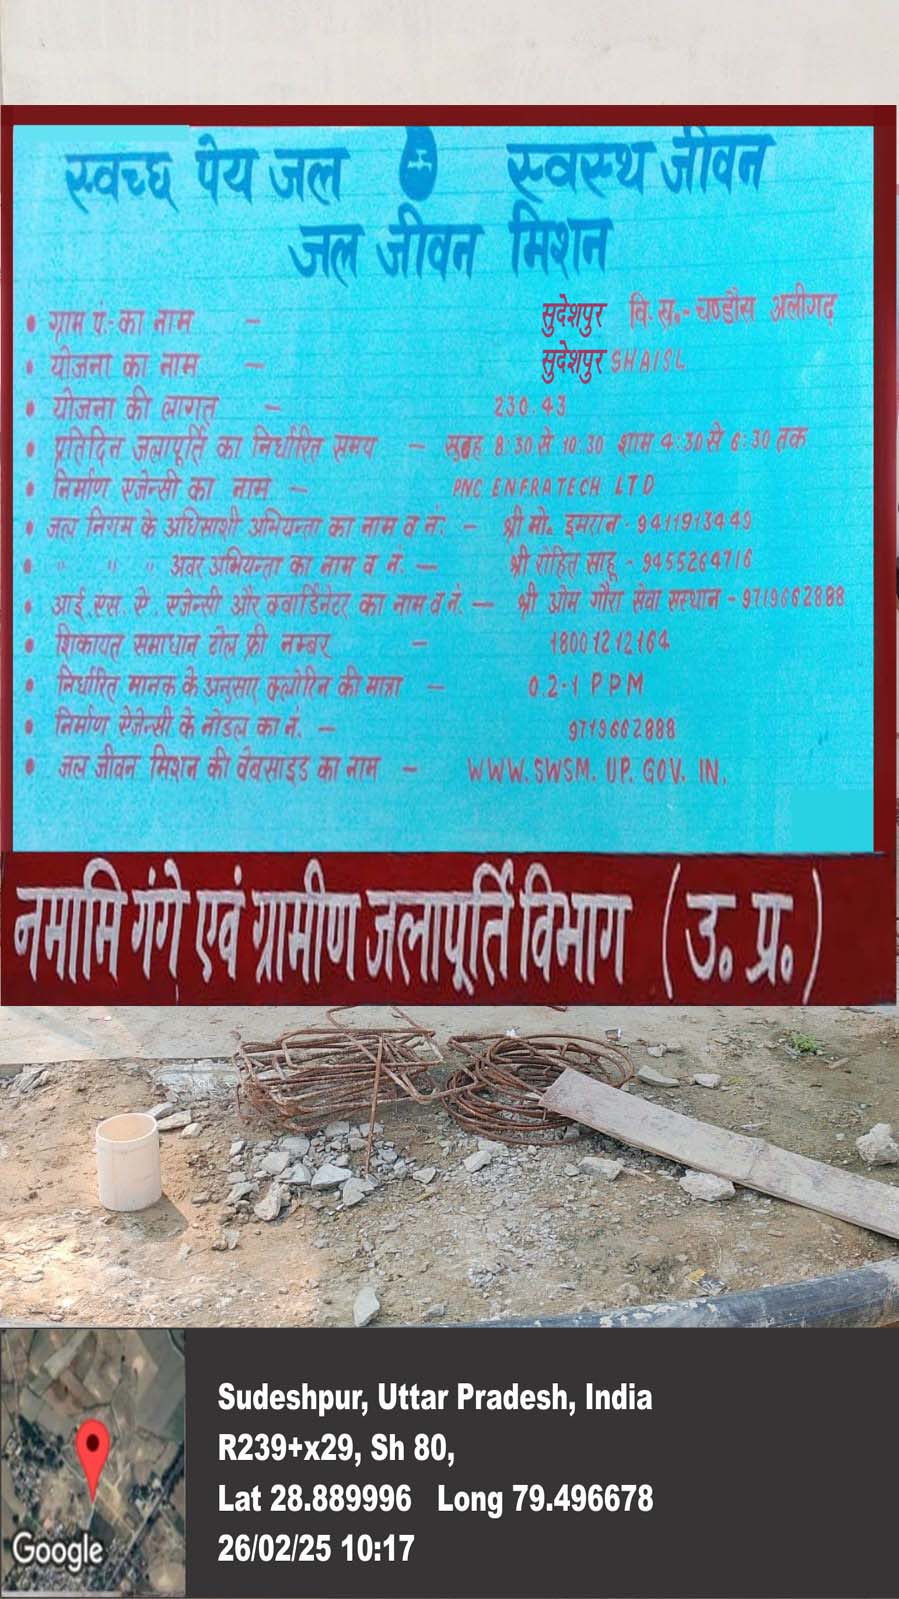 स्वच्छ पेय जल स्वस्थ जीवन
जल जीवन मिशन
• ग्राम पं.-का नाम – सुदेशपुर वि.ख.- चण्डौस अलीगढ़
• योजना का नाम – सुदेशपुर SHAISL
• योजना की लागत – 230.43
• प्रतिदिन जलापूर्ति का निर्धारित समय – सुबह 8:30 से 10:30 शाम 4:30 से 6:30 तक
• निर्माण एजेन्सी का नाम – PNC ENFRATECH LTD
• जल निगम के अधिसाशी अभियन्ता का नाम व नं. – श्री मो. इमरान - 9411913449
• " " " अवर अभियन्ता का नाम व नं. – श्री रोहित साहू - 9455264716
• आई.एस.ए. एजेन्सी और क्वार्डिनेटर का नाम व नं. – श्री ओम गौरा सेवा सस्थान - 9719662888
• शिकायत समाधान टोल फ्री नम्बर – 18001212164
• निर्धारित मानक के अनुसार क्लोरिन की मात्रा – 0.2-1 PPM
• निर्माण ऐजेन्सी के नोडल का नं. – 9719662888
• जल जीवन मिशन की वेबसाइड का नाम – WWW.SWSM.UP.GOV.IN.
नमामि गंगे एवं ग्रामीण जलापूर्ति विभाग (उ.प्र.)
Sudeshpur, Uttar Pradesh, India
R239+x29, Sh 80,
Lat 28.889996 Long 79.496678
26/02/25 10:17
Google